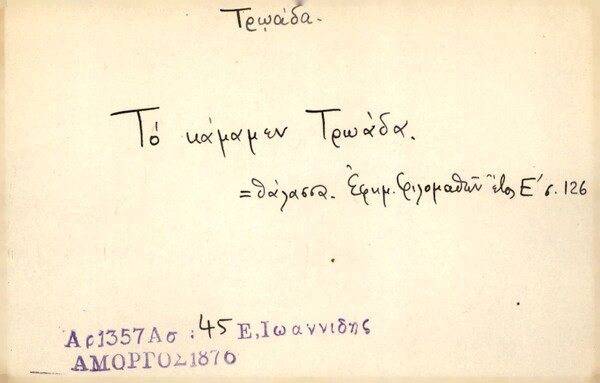 Τρῳάδα.
Τό κάμαμεν Τρῳάδα.
= θάλασσα. Ἐφημ. Φιλομαθῶν ἔτος Ε΄ σ. 126
Αρ1357Ασ : 45 Ε, Ιωαννιδης
ΑΜΟΡΓΟΣ1876